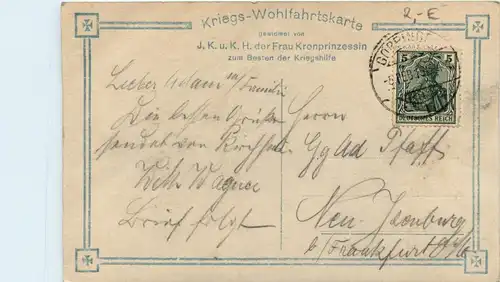 2,-E
Kriegs-Wohlfahrtskarte
gewidmet von
J. K. u. K. H. der Frau Kronprinzessin
zum Besten der Kriegshilfe
5 5
DEUTSCHES REICH
Lieber Adam u/ Familie
Die besten Grüße
sendet von
Wilh. Wagner
Brief folgt
Herrn
Gg Ad Pfaff
Neu-Isenburg
b/ Frankfurt a/M